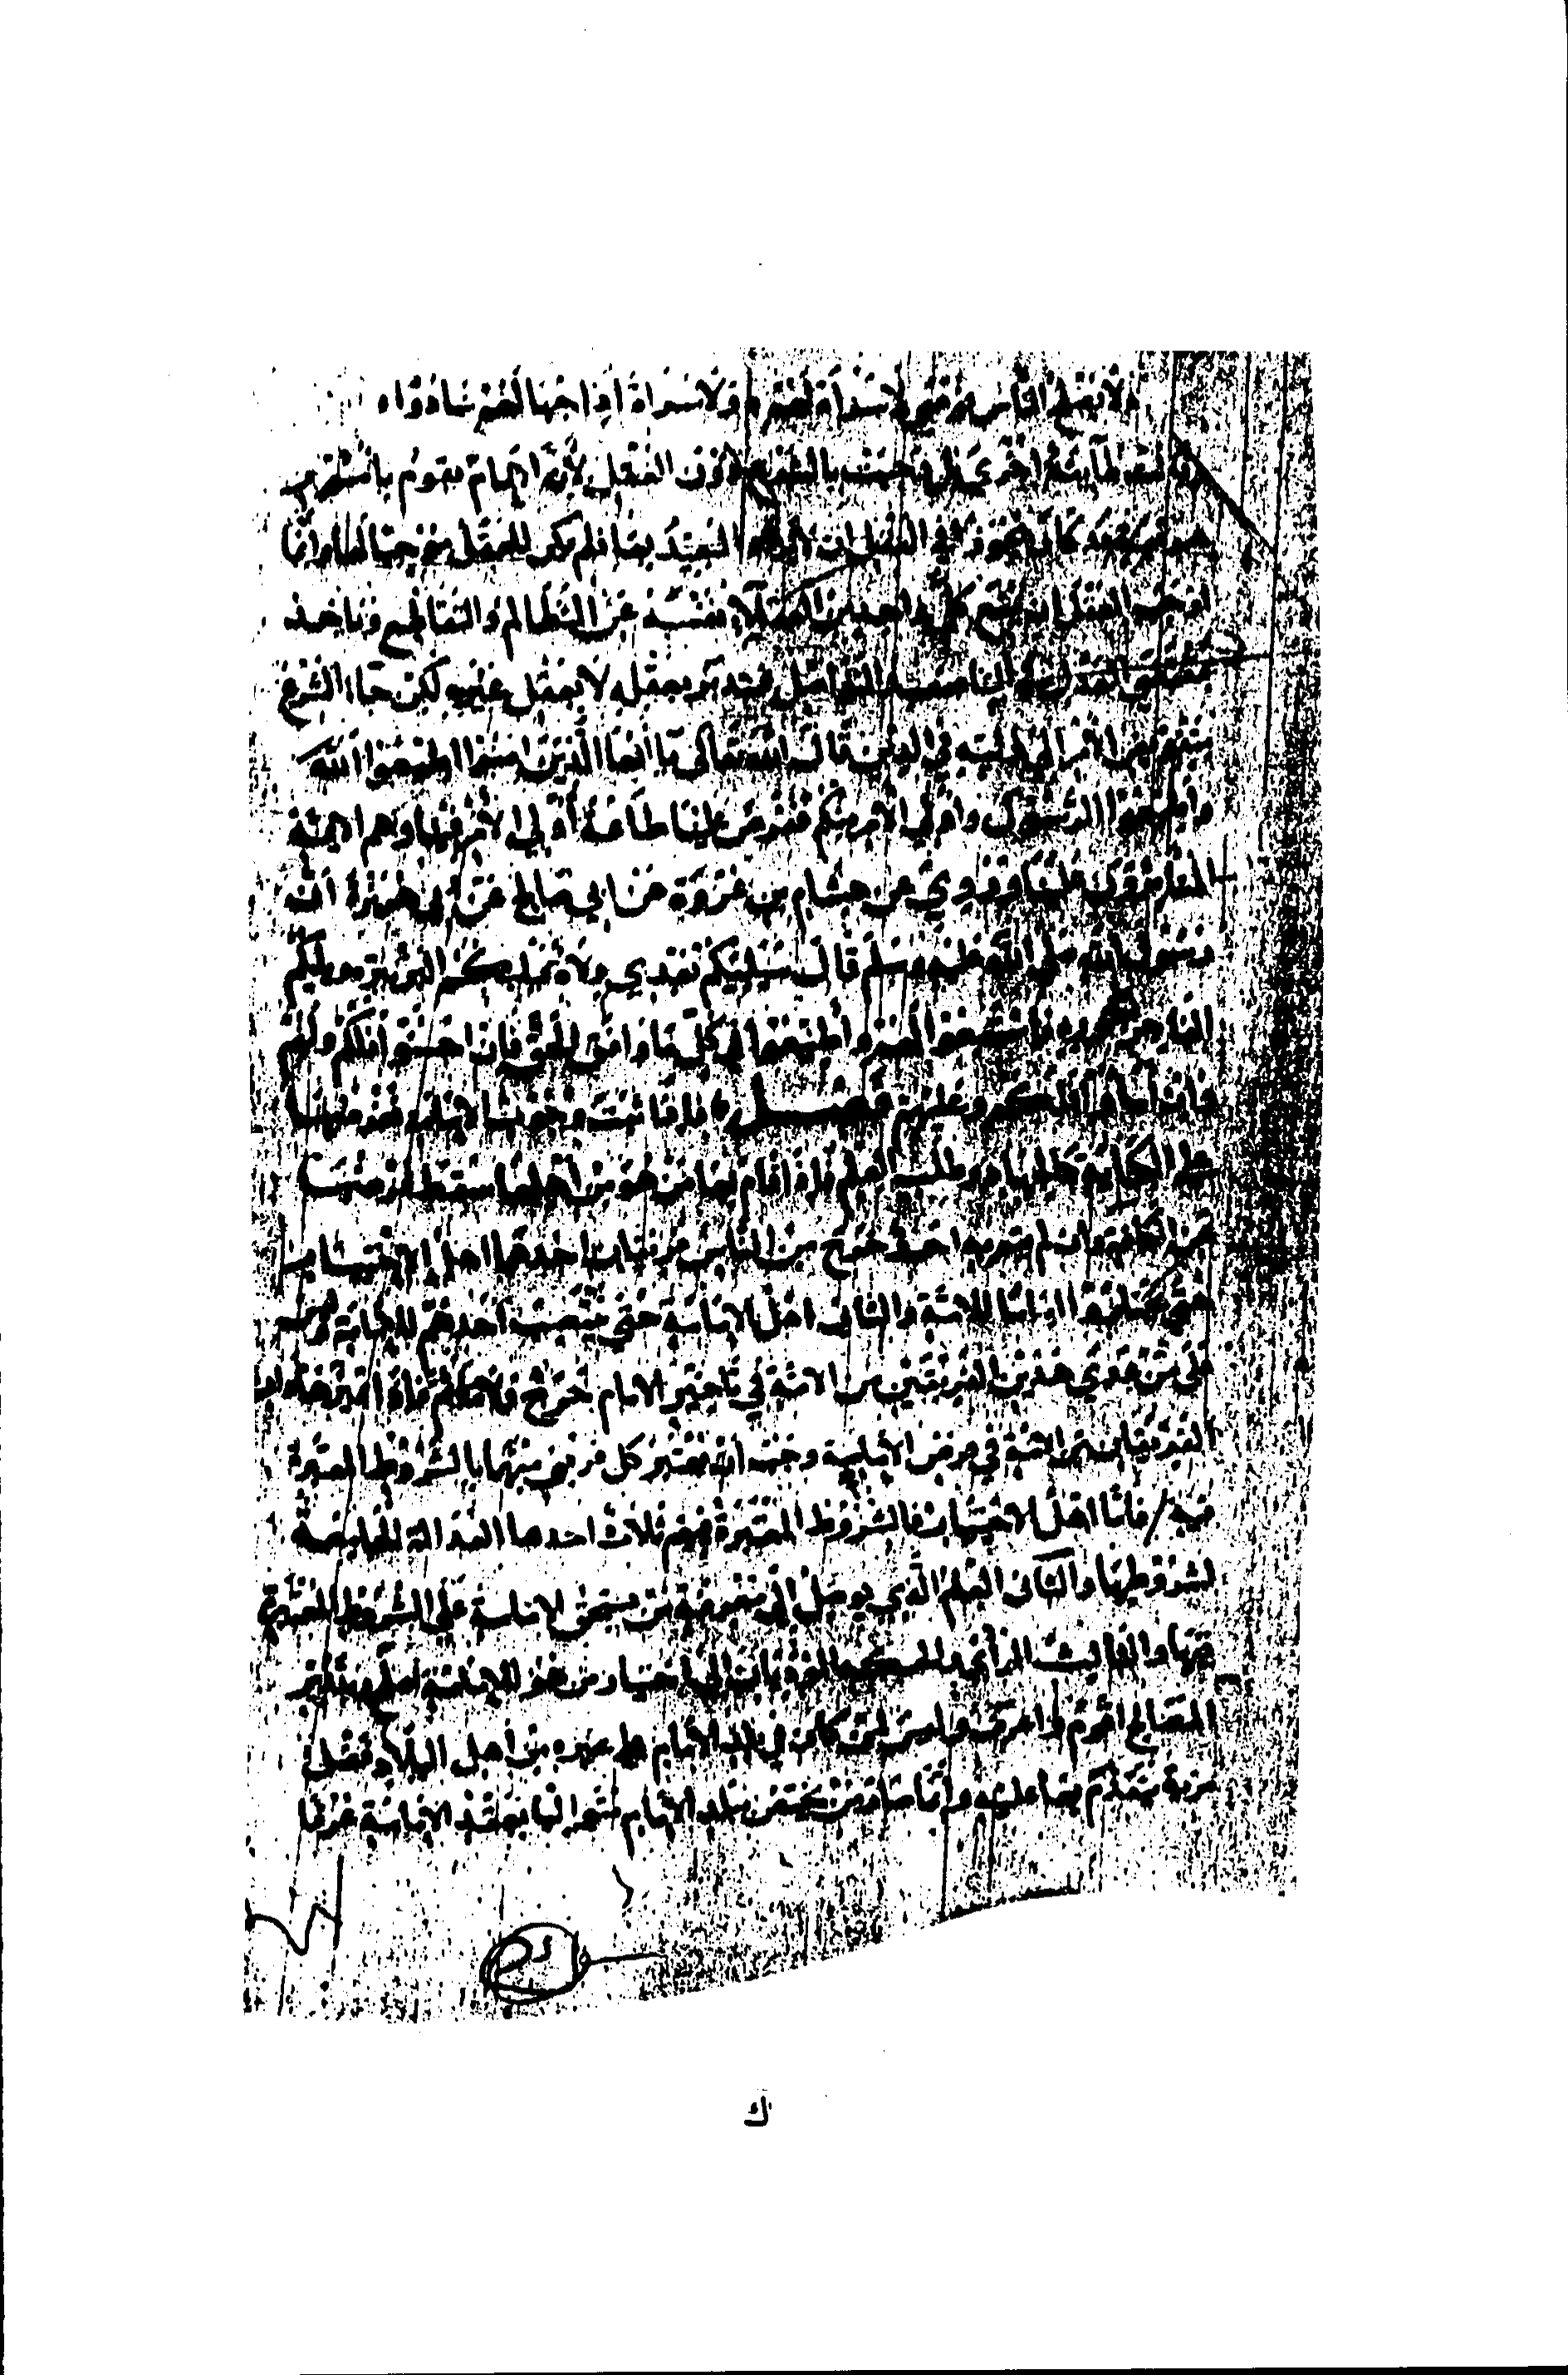 لا يصلح الناس فوضى لا سراة لهم ولا سراة اذا جهالهم سادوا
وقالت طائفة اخرى بل وجبت بالشرع دون العقل لأن الامام يقوم بامور شرعية
كان مجوزا في العقل ان لا يرد التعبد بها فلم يكن العقل موجبا لها وانما
اوجب العقل ان يمنع كل واحد من العقلاء نفسه عن التظالم والتقاطع وياخذ
بمقتضى العدل في التناصف والتواصل فيتدبر بعقله لا بعقل غيره لكن جاء الشرع
بتفويض الامر الى وليه في الدين قال الله تعالى يا ايها الذين امنوا اطيعوا الله
واطيعوا الرسول واولي الامر منكم ففرض علينا طاعة أولي الامر فينا وهم الايمة
المتامرون علينا وروي هشام بن عروة عن ابي صالح عن ابي هريرة ان
رسول الله صلى الله عليه وسلم قال سيليكم بعدي ولاة فيليكم البر ببره ويليكم
الفاجر بفجوره فاسمعوا لهم واطيعوا في كل ما وافق الحق فان احسنوا فلكم ولهم
فان أساوا فلكم وعليهم فصل فاذا ثبت وجوب الامامة ففرضها
على الكفاية كالجهاد وطلب العلم فاذا قام بها من هو من اهلها سقط فرضها
عن الكافة وان لم يقم بها احد خرج من الناس فريقان احدهما اهل الاختيار
حتى يختاروا اماما للامة والثاني اهل الامامة حتى ينتصب احدهم للامامة وليس
على من عدى هذين الفريقين من الامة في تاخير الامام حرج ولا مأثم فاذا تميز هذان
الفريقان من الامة في فرض الامامة وجب أن يعتبر كل فريق منهما بالشروط المعتبرة
فيه فاما اهل الاختيار فالشروط المعتبرة فيهم ثلاث احدها العدالة الجامعة
لشروطها والثاني العلم الذي يوصل الى معرفة من يستحق الامامة على الشروط المعتبرة
فيها والثالث الرأي والحكمة المؤديان الى اختيار من هو للامامة اصلح وبتدبير
المصالح اقوم واعرف وليس لمن كان في بلد الامام على غيره من اهل البلاد فضل
مزية يتقدم بها عليه وانما صار من يختص ببلد الامام متوليا لعقد الامامة عرفا
ك